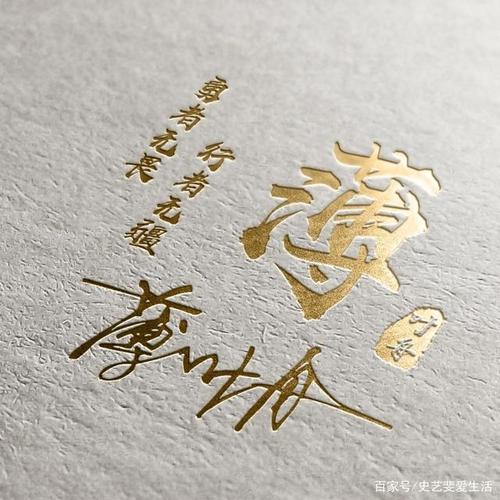 薄
勇者无畏
行者无疆
百家号/史艺斐爱生活